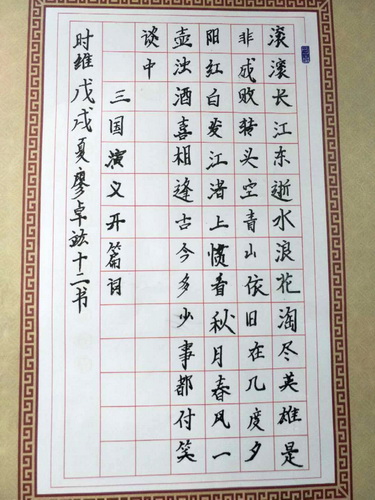 滚滚长江东逝水浪花淘尽英雄是
非成败转头空青山依旧在几度夕
阳红白发江渚上惯看秋月春风一
壶浊酒喜相逢古今多少事都付笑
谈中
三国演义开篇词
时维戊戌夏廖卓十二书